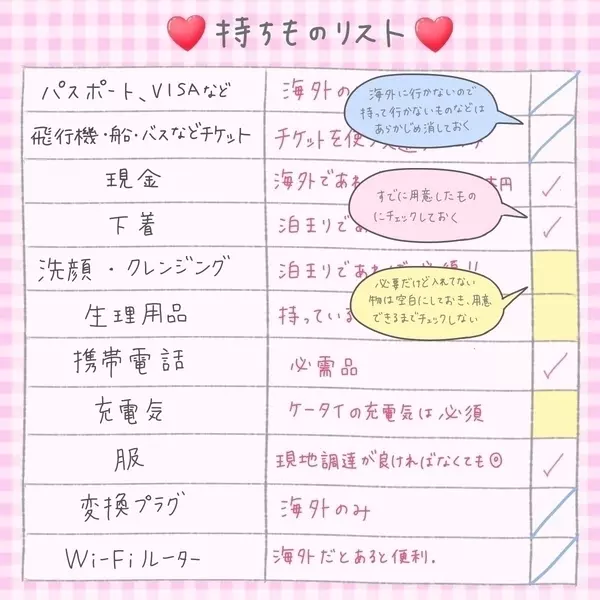 持ちものリスト
パスポート、VISAなど 海外の
海外に行かないので
持って行かないものなどは
あらかじめ消しておく
飛行機・船・バスなどチケット チケットを使
現金 海外であれ 円
すでに用意したもの
にチェックしておく
下着 泊まりであ
洗顔・クレンジング 泊まりであれば
必要だけど入れてない
物は空白にしておき、用意
できるまでチェックしない
生理用品 持っている
携帯電話 必需品
充電気 ケータイの充電気は必須
服 現地調達が良ければなくても◎
変換プラグ 海外のみ
Wi-Fiルーター 海外だとあると便利.